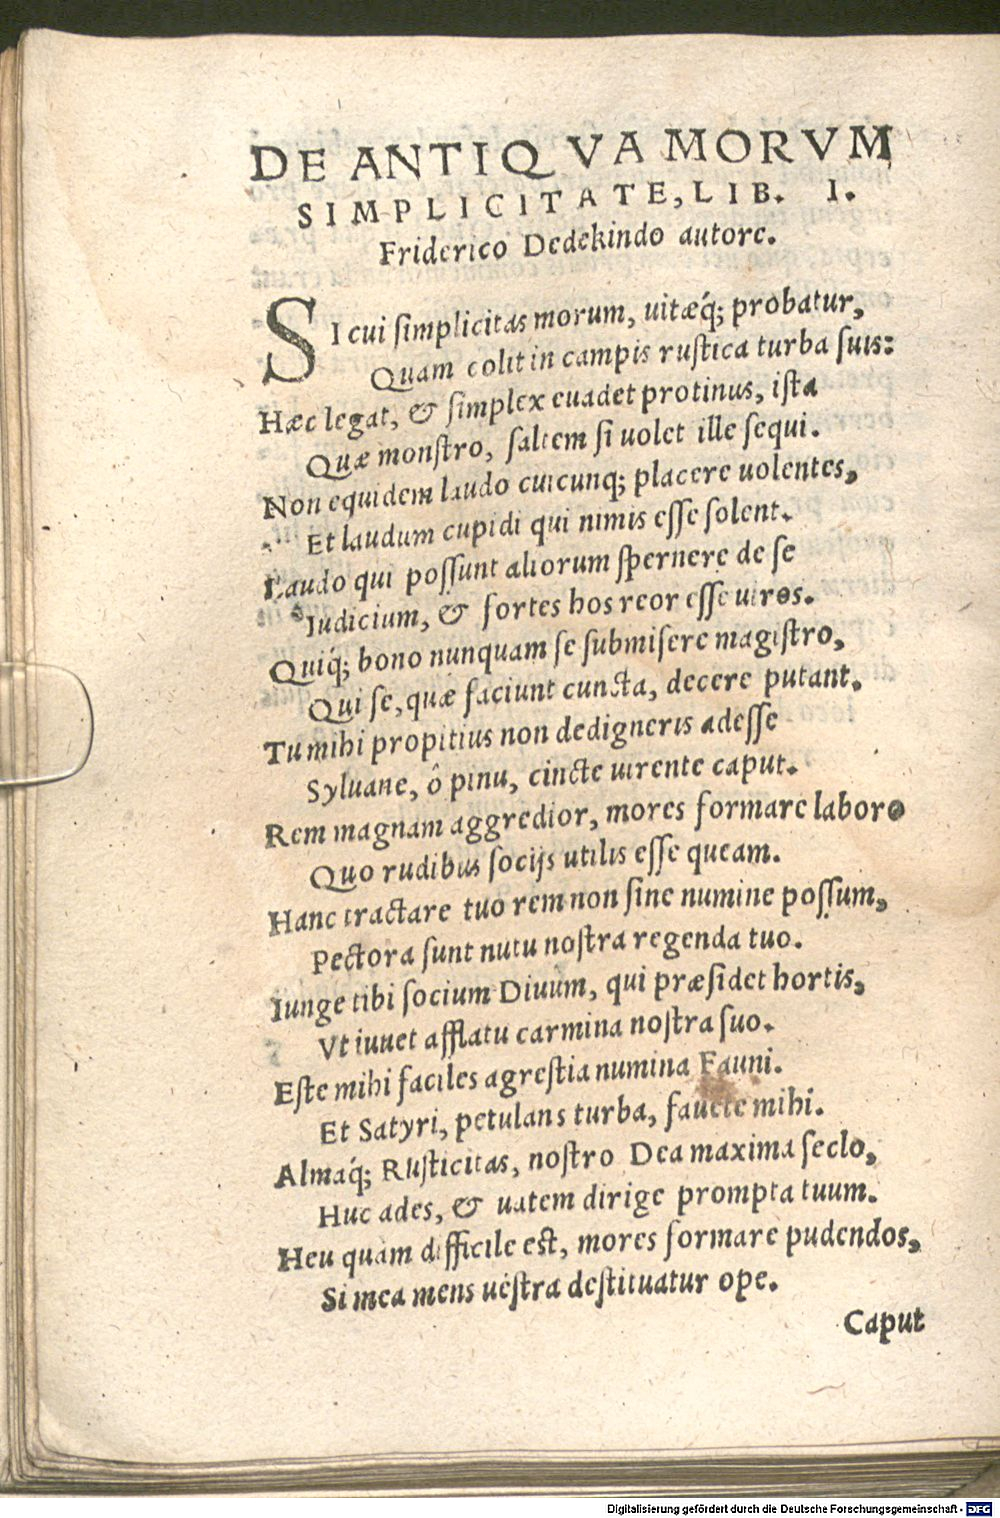 DE ANTIQVA MORVM
SIMPLICITATE, LIB. I.
Friderico Dedekindo autore.
SI cui simplicitas morum, uitæq́; probatur,
Quam colit in campis rustica turba suis:
Hæc legat, & simplex euadet protinus, ista
Quæ monstro, saltem si uolet ille sequi.
Non equidem laudo cuicunq; placere uolentes,
Et laudum cupidi qui nimis esse solent.
Laudo qui possunt aliorum spernere de se
Iudicium, & fortes hos reor esse uiros.
Quiq́; bono nunquam se submisere magistro,
Qui se, quæ faciunt cuncta, decere putant.
Tu mihi propitius non dedigneris adesse
Syluane, ô pinu, cincte uirente caput.
Rem magnam aggredior, mores formare laboro
Quo rudibus socijs utilis esse queam.
Hanc tractare tuo rem non sine numine possum,
Pectora sunt nutu nostra regenda tuo.
Iunge tibi socium Diuûm, qui præsidet hortis,
Vt iuuet afflatu carmina nostra suo.
Este mihi faciles agrestia numina Fauni.
Et Satyri, petulans turba, fauete mihi.
Almaq́; Rusticitas, nostro Dea maxima seclo,
Huc ades, & uatem dirige prompta tuum.
Heu quàm difficile est, mores formare pudendos,
Si mea mens uestra destituatur ope.
Caput
Digitalisierung gefördert durch die Deutsche Forschungsgemeinschaft - DFG